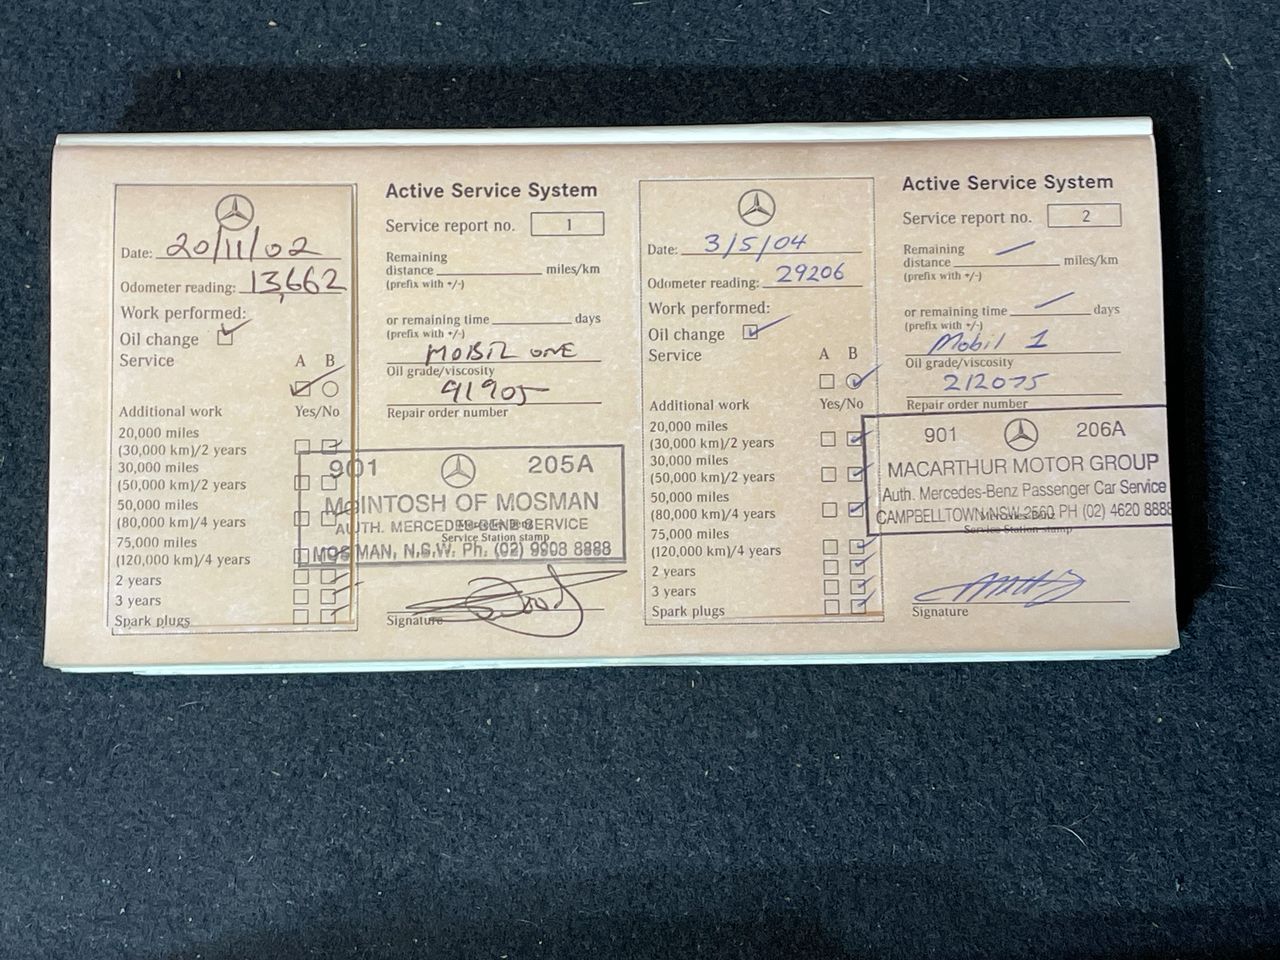 Date: 20/11/02
Odometer reading: 13,662
Work performed:
Oil change
Service
A B
Additional work Yes/No
20,000 miles
(30,000 km)/2 years
30,000 miles
(50,000 km)/2 years
50,000 miles
(80,000 km)/4 years
75,000 miles
(120,000 km)/4 years
2 years
3 years
Spark plugs
Active Service System
Service report no. 1
Remaining
distance miles/km
(prefix with +/-)
or remaining time days
(prefix with +/-)
MOBIL ONE
Oil grade/viscosity
91905
Repair order number
901 205A
McINTOSH OF MOSMAN
AUTH. MERCEDES-BENZ SERVICE
Service Station stamp
MOSMAN, N.S.W. Ph. (02) 9908 8888
Signature
Date: 3/5/04
Odometer reading: 29206
Work performed:
Oil change
Service
A B
Additional work Yes/No
20,000 miles
(30,000 km)/2 years
30,000 miles
(50,000 km)/2 years
50,000 miles
(80,000 km)/4 years
75,000 miles
(120,000 km)/4 years
2 years
3 years
Spark plugs
Active Service System
Service report no. 2
Remaining
distance miles/km
(prefix with +/-)
or remaining time days
(prefix with +/-)
Mobil 1
Oil grade/viscosity
212075
Repair order number
901 206A
MACARTHUR MOTOR GROUP
Auth. Mercedes-Benz Passenger Car Service
CAMPBELLTOWN NSW 2560 PH (02) 4620 8888
Service Station stamp
Signature